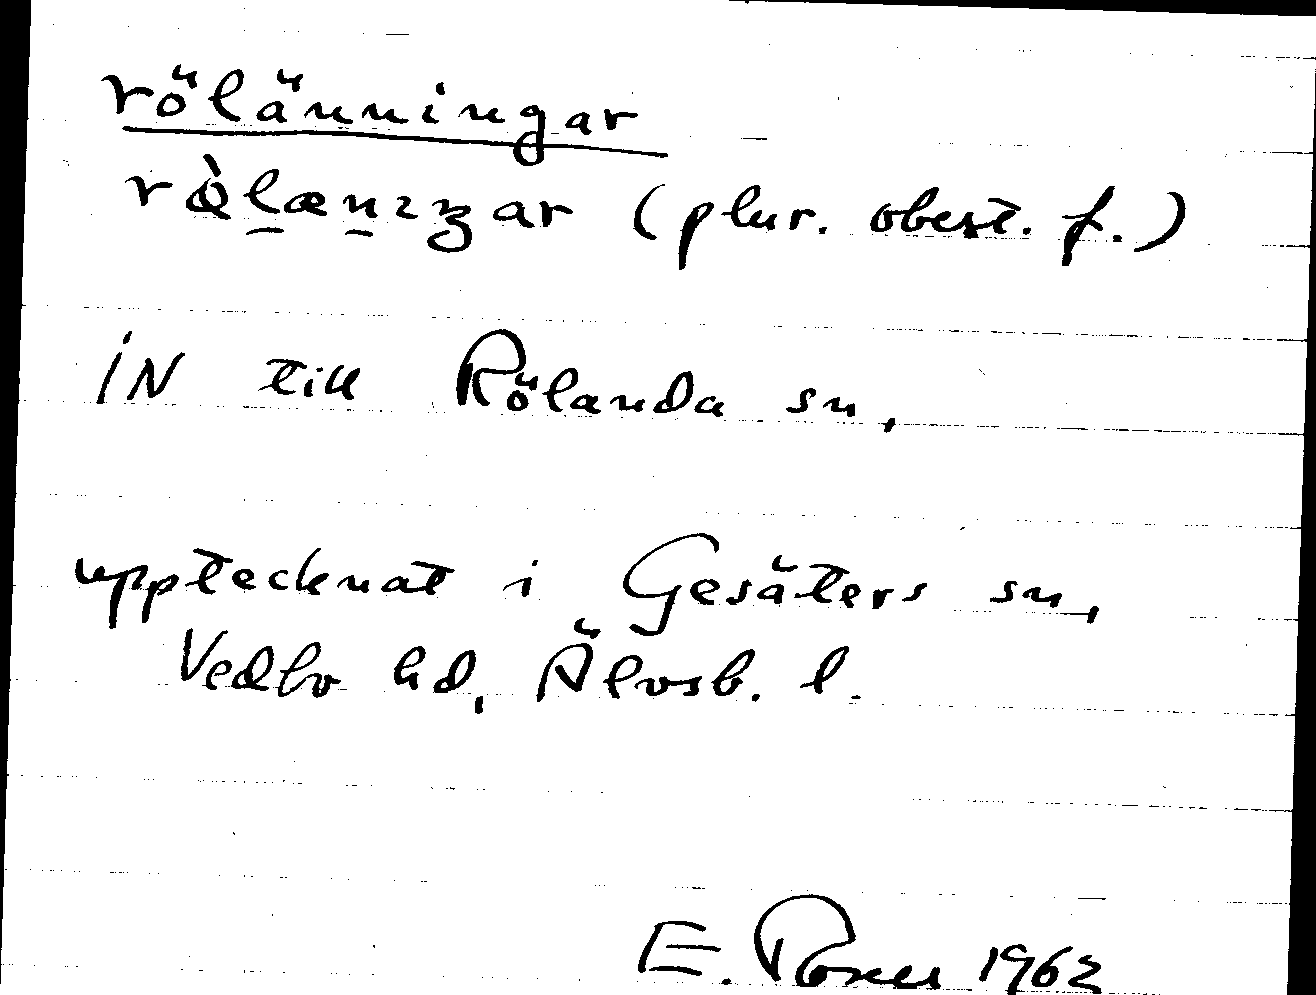 rölänningar
rö̀lænɪŋar (plur. obest. f.)
IN till Rölanda sn,
upptecknat i Gesäters sn,
Vedbo hd, Älvsb. l.
E. 1962